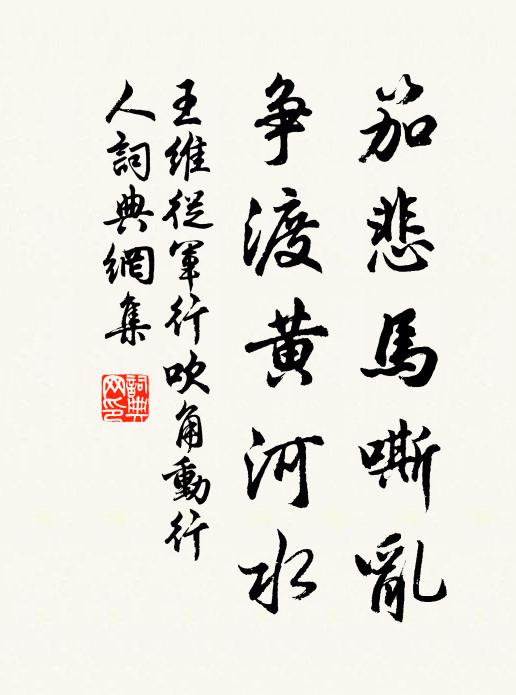 笳悲馬嘶亂
爭渡黄河水
王維從軍行吹角動行
人詞典網集
詞典
网印